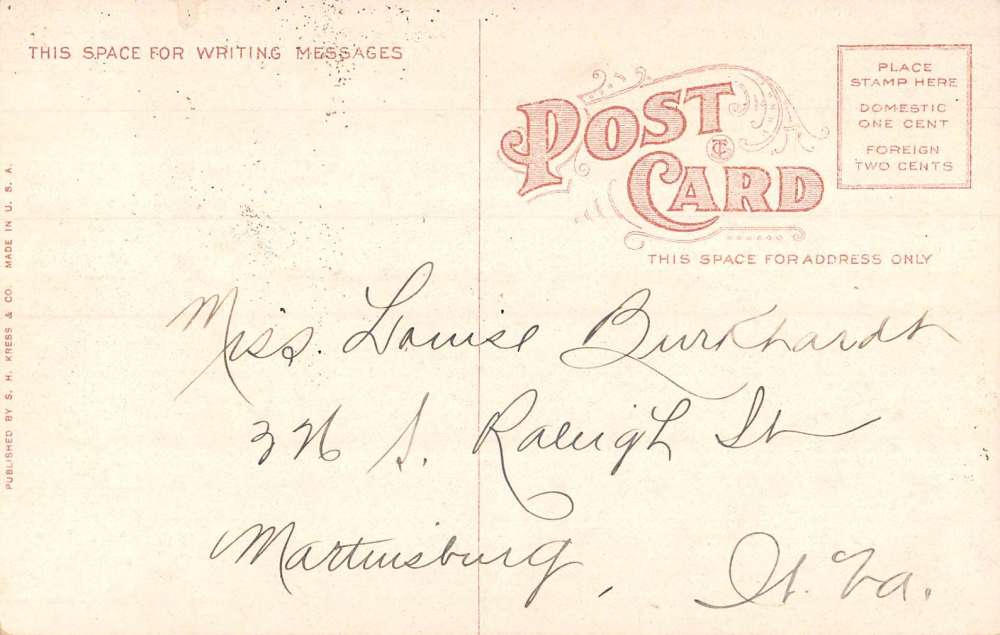 THIS SPACE FOR WRITING MESSAGES
POST
CARD
PLACE
STAMP HERE
DOMESTIC
ONE CENT
FOREIGN
TWO CENTS
THIS SPACE FOR ADDRESS ONLY
Miss. Louise Burkhardt
326 S. Raleigh St
Martinsburg, W. Va.
PUBLISHED BY S. H. KRESS & CO. MADE IN U. S. A.